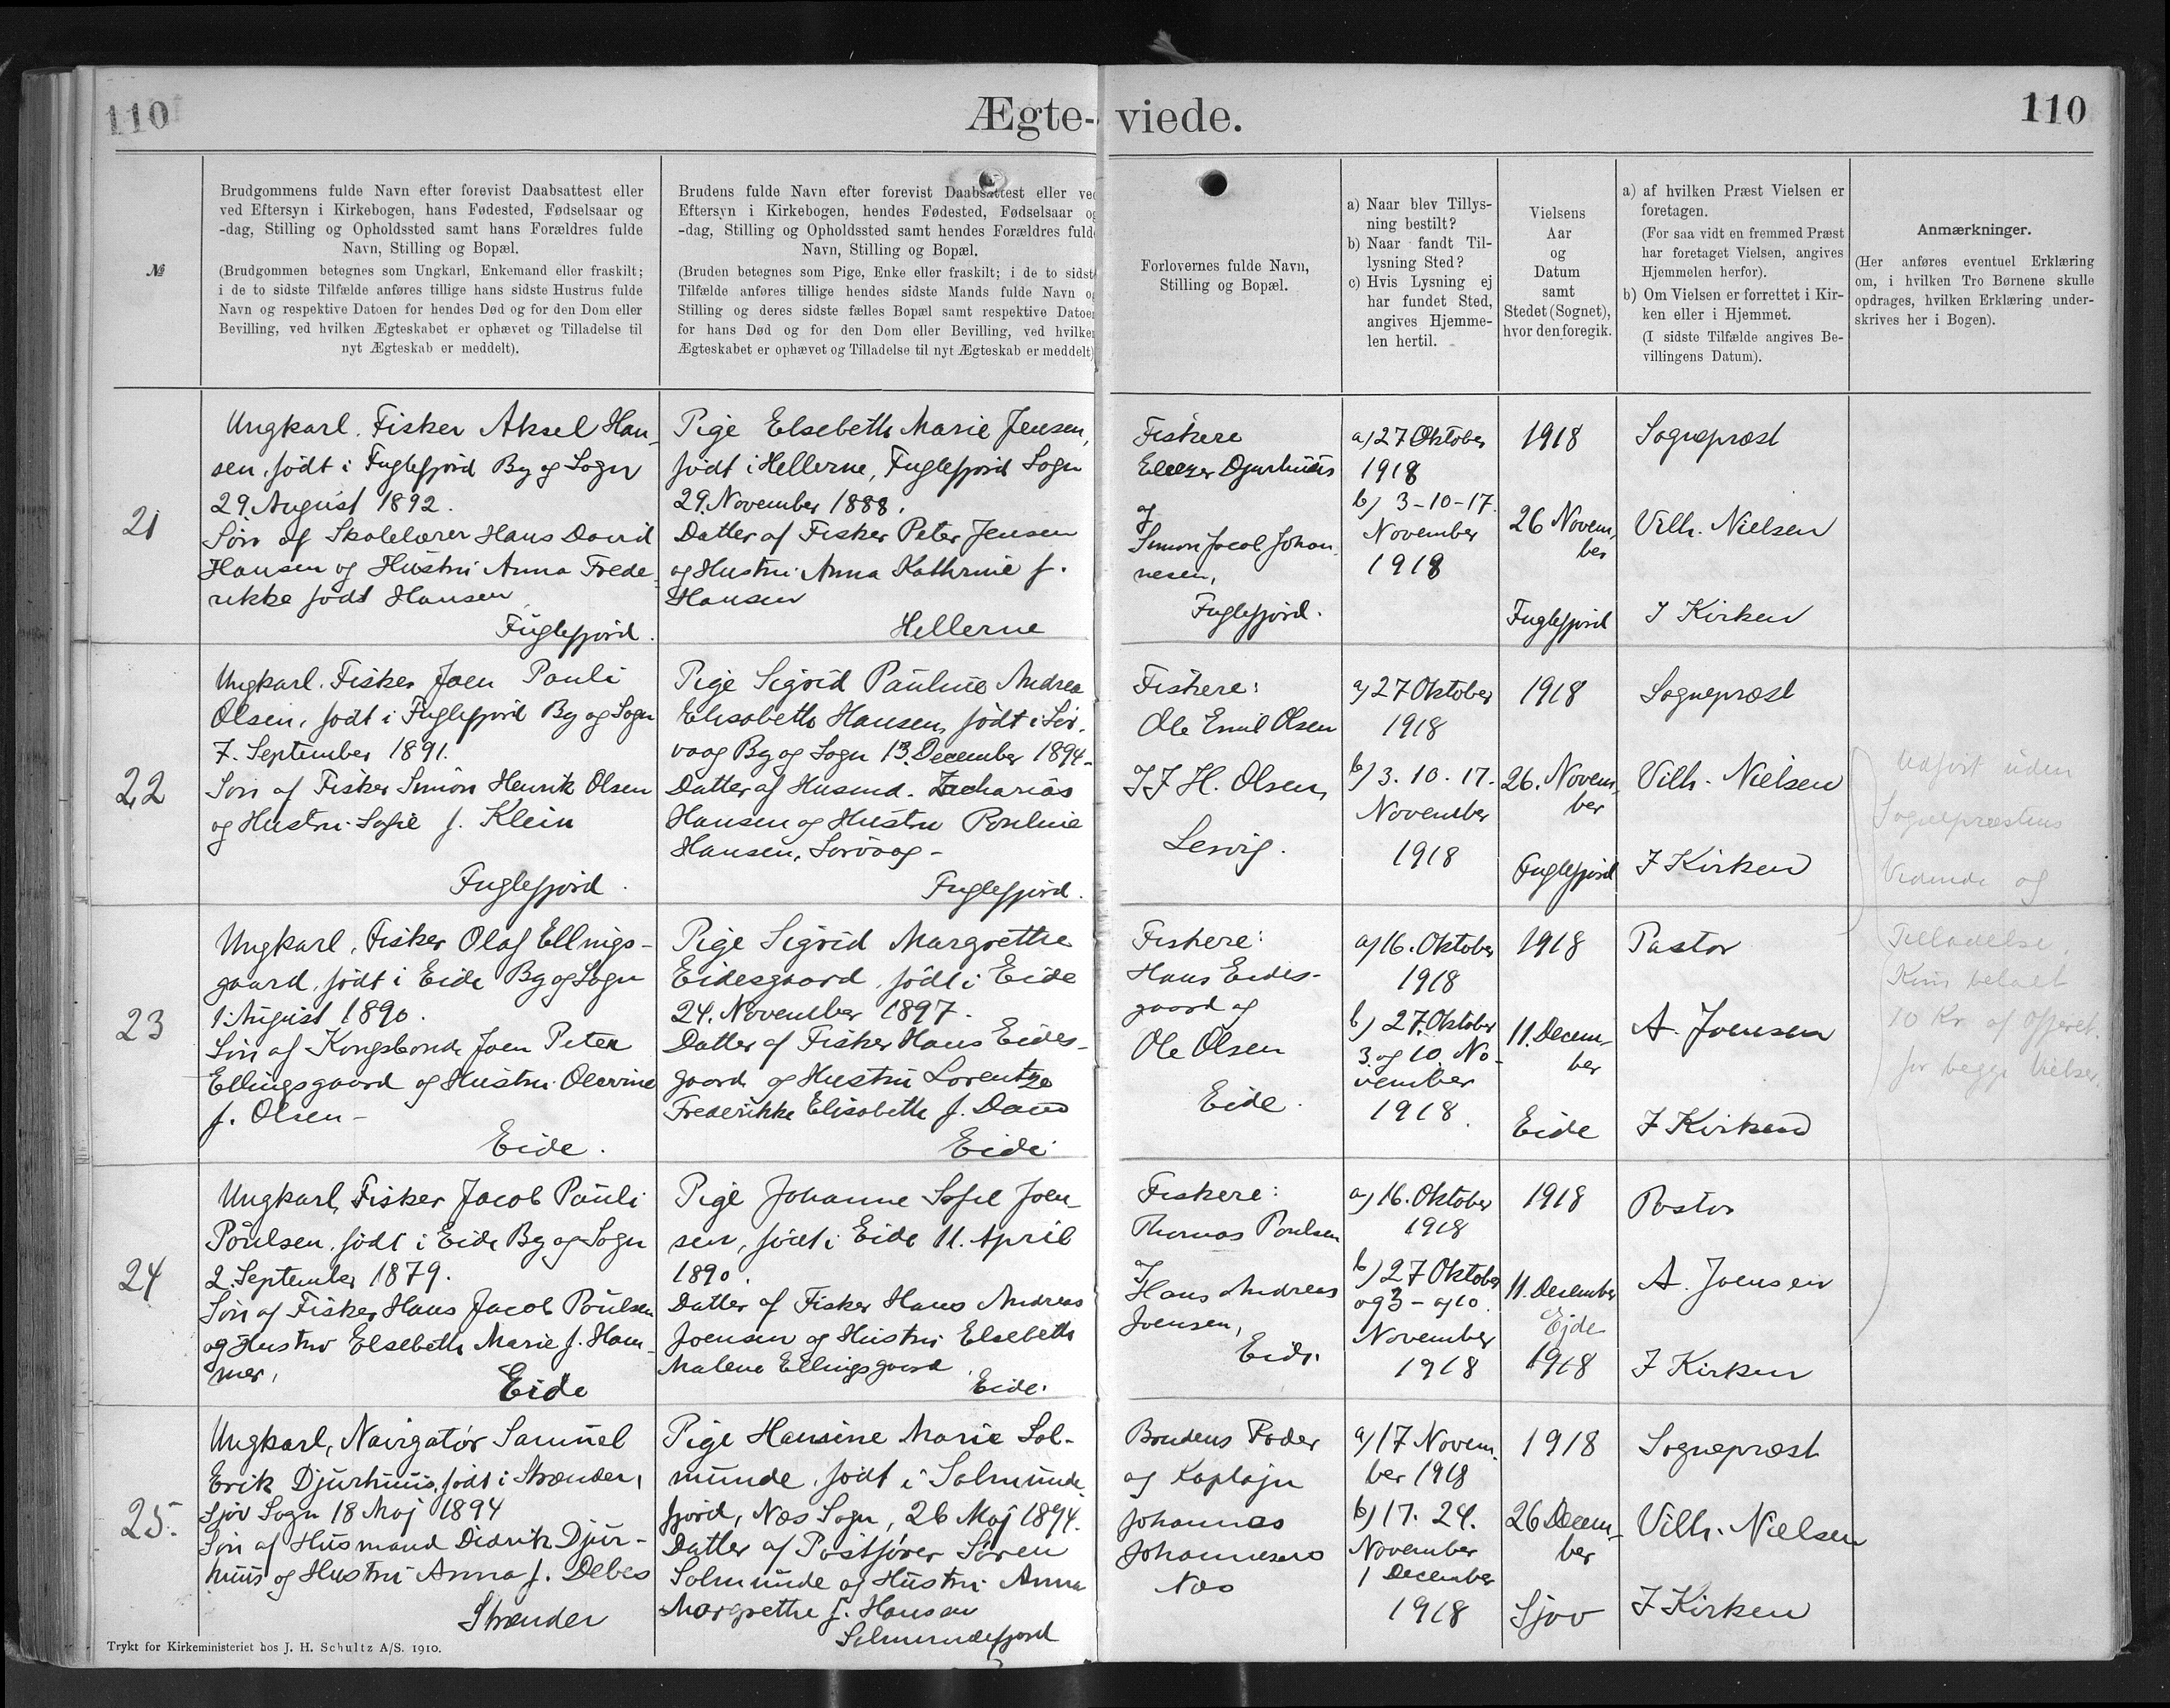 110
Ægte-viede.
110
№
Brudgommens fulde Navn efter forevist Daabsattest eller
ved Eftersyn i Kirkebogen, hans Fødested, Fødselsaar og
-dag, Stilling og Opholdssted samt hans Forældres fulde
Navn, Stilling og Bopæl.
(Brudgommen betegnes som Ungkarl, Enkemand eller fraskilt;
i de to sidste Tilfælde anføres tillige hans sidste Hustrus fulde
Navn og respektive Datoen for hendes Død og for den Dom eller
Bevilling, ved hvilken Ægteskabet er ophævet og Tilladelse til
nyt Ægteskab er meddelt).
Brudens fulde Navn efter forevist Daabsattest eller ved
Eftersyn i Kirkebogen, hendes Fødested, Fødselsaar og
-dag, Stilling og Opholdssted samt hendes Forældres fulde
Navn, Stilling og Bopæl.
(Bruden betegnes som Pige, Enke eller fraskilt; i de to sidste
Tilfælde anføres tillige hendes sidste Mands fulde Navn og
Stilling og deres sidste fælles Bopæl samt respektive Datoen
for hans Død og for den Dom eller Bevilling, ved hvilken
Ægteskabet er ophævet og Tilladelse til nyt Ægteskab er meddelt)
Forlovernes fulde Navn,
Stilling og Bopæl.
a) Naar blev Tillys-
ning bestilt?
b) Naar fandt Til-
lysning Sted?
c) Hvis Lysning ej
har fundet Sted,
angives Hjemme-
len hertil.
Vielsens
Aar
og
Datum
samt
Stedet (Sognet),
hvor den foregik.
a) af hvilken Præst Vielsen er
foretagen.
(For saa vidt en fremmed Præst
har foretaget Vielsen, angives
Hjemmelen herfor).
b) Om Vielsen er forrettet i Kir-
ken eller i Hjemmet.
(I sidste Tilfælde angives Be-
villingens Datum).
Anmærkninger.
(Her anføres eventuel Erklæring
om, i hvilken Tro Børnene skulle
opdrages, hvilken Erklæring under-
skrives her i Bogen).
21
Ungkarl. Fisker Aksel Han-
sen, født i Fuglefjord By og Sogn
29. August 1892.
Søn af Skolelærer Hans David
Hansen og Hustru Anna Frede-
rikke født Hansen
Fuglefjord.
Pige Elsebeth Marie Jensen,
født i Hellerne, Fuglefjord Sogn
29. November 1888.
Datter af Fisker Peter Jensen
og Hustru Anna Kathrine f.
Hansen
Hellerne
Fiskere
Eleezer Djurhuus
og
Simon Jacob Johan
nesen,
Fuglefjord.
a) 27 Oktober
1918
b) 3-10-17.
November
1918
1918
26 Novem,
ber
Fuglefjord
Sognepræst
Vilh. Nielsen
I Kirken
22
Ungkarl. Fisker Joen Pauli
Olsen, født i Fuglefjord By og Sogn
7. September 1891.
Søn af Fisker Simon Henrik Olsen
og Hustru Sofie f. Klein
Fuglefjord.
Pige Sigrid Pauline Andrea
Elisabeth Hansen, født i Sør.
vaag By og Sogn 13. December 1894-
Datter af Husmd. Zacharias
Hansen og Hustru Pouline
Hansen, Sørvaag-
Fuglefjord.
Fiskere:
Ole Emil Olsen
J F H. Olsen,
Lervig.
a) 27 Oktober
1918
b) 3. 10. 17.
November
1918
1918
26. Novem,
ber
Fuglefjord
Sognepræst
Vilh. Nielsen
I Kirken
Udført uden
Sognepræstens
Vidende og
Tilladelse.
Kun betalt
10 Kr. af Offeret
for begge Vielser.
23
Ungkarl, Fisker Olaf Ellings-
gaard, født i Eide By og Sogn
1. August 1890.
Søn af Kongsbonde Joen Peter
Ellingsgaard og Hustru Olevine
f. Olsen-
Eide.
Pige Sigrid Margrethe
Eidesgaard, født i Eide
24. November 1897.
Datter af Fisker Hans Eides-
gaard og Hustru Lorentze
Frederikke Elisabeth f. Dam
Eide
Fiskere:
Hans Eides-
gaard og
Ole Olsen
Eide.
a) 16. Oktober
1918
b) 27. Oktober
3. og 10. No-
vember
1918.
1918
11. Decem-
ber
Eide
Pastor
A. Joensen
I Kirken
24
Ungkarl, Fisker Jacob Pauli
Poulsen, født i Eide By og Sogn
2. September 1879.
Søn af Fisker Hans Jacob Poulsen
og Hustru Elsebeth Marie f. Ham-
mer,
Eide
Pige Johanne Sofie Joen-
sen, født i Eide 11. April
1890.
Datter af Fisker Hans Andreas
Joensen og Hustru Elsebeth
Malene Ellingsgaard
Eide.
Fiskere:
Thomas Poulsen
og
Hans Andreas
Joensen,
Eide
a) 16. Oktober
1918
b) 27 Oktober
og 3- og 10.
November
1918
1918
11. December
Ejde
1918
Pastor
A. Joensen
I Kirken
25.
Ungkarl, Navigatør Samuel
Erik Djurhuus, født i Strænder,
Sjov Sogn 18 Maj 1894
Søn af Husmand Didrik Djur-
huus og Hustru Anna f. Debes
Strænder
Pige Hansine Marie Sol-
munde, født i Solmunde
fjord, Næs Sogn, 26 Maj 1894.
Datter af Postfører Søren
Solmunde og Hustru Anna
Margrethe f. Hansen
Solmundefjord
Brudens Fader
og Kaptajn
Johannes
Johannesen
Næs
a) 17 Novem
ber 1918
b) 17. 24.
November
1 December
1918
1918
26 Decem-
ber
Sjov
Sognepræst
Vilh. Nielsen
I Kirken
Trykt for Kirkeministeriet hos J. H. Schultz A/S. 1910.